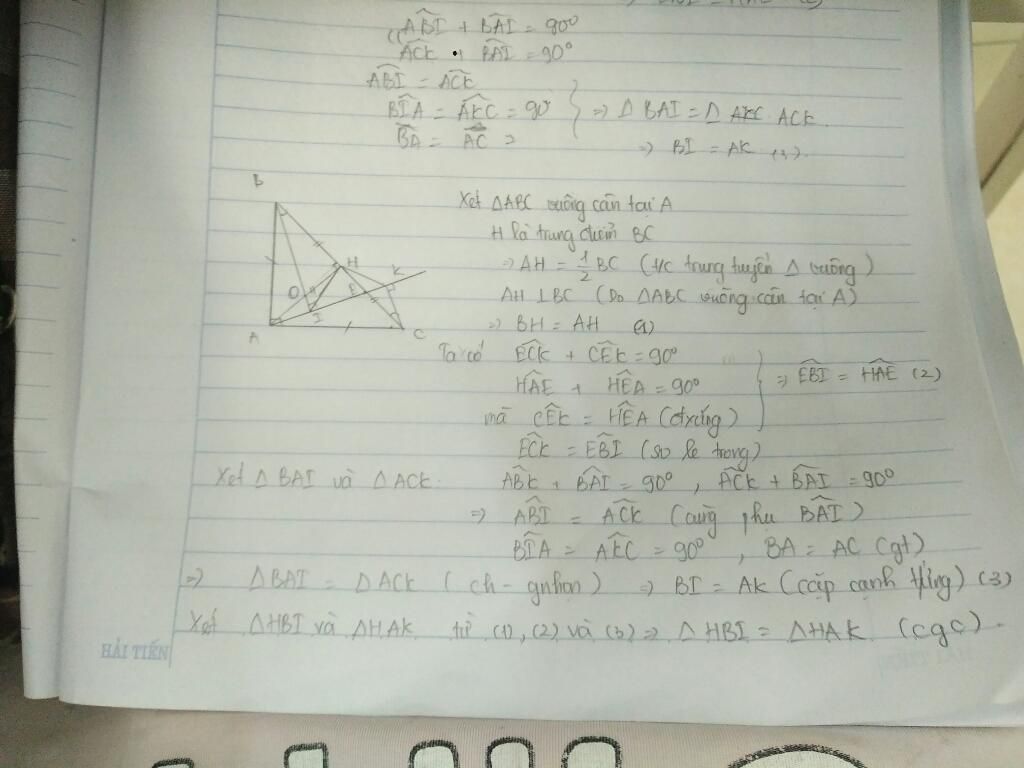 ABI + BAI = 90°
ACK + BAI = 90°
ABI = ACK
BIA = AKC = 90° ⇒ Δ BAI = Δ ACK
BA = AC ⇒ ⇒ BI = AK (3).
B
H
K
O
E
I
A
C
Xét ΔABC vuông cân tại A
H là trung điểm BC
⇒ AH = 1/2 BC (t/c trung tuyến Δ vuông)
AH ⊥ BC (Do ΔABC vuông cân tại A)
⇒ BH = AH (1)
Ta có ECK + CEK = 90°
HAE + HEA = 90° ⇒ EBI = HAE (2)
mà CEK = HEA (đ.xứng)
ECK = EBI (so le trong)
Xét Δ BAI và Δ ACK. ABK + BAI = 90°, ACK + BAI = 90°
⇒ ABI = ACK (cùng phụ BAI)
BIA = AKC = 90°, BA = AC (gt)
⇒ ΔBAI = ΔACK (ch - gnhọn) ⇒ BI = AK (cặp cạnh t/ứng) (3)
Xét ΔHBI và ΔHAK từ (1), (2) và (3) ⇒ Δ HBI = ΔHAK (cgc).
HẢI TIẾN